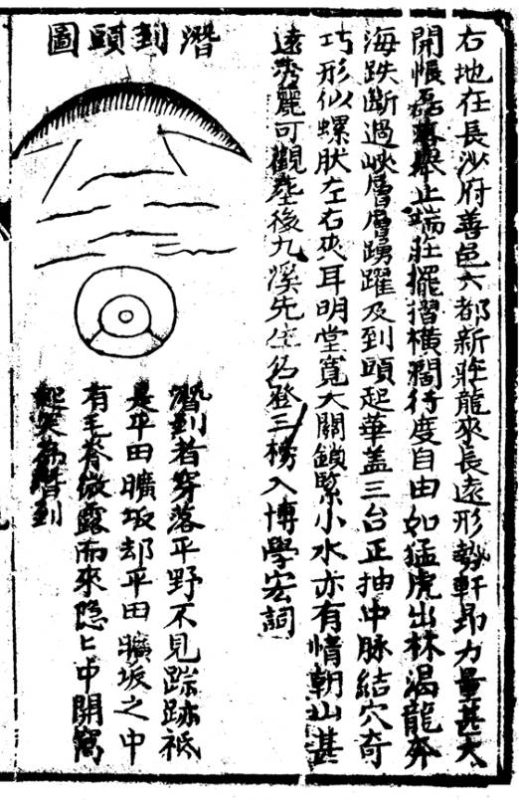 右地在長沙府善邑六都新庄龍來長遠形勢軒昂力量甚大
開帳磊落舉止端莊擺摺橫濶待度自由如猛虎出林渴龍奔
海跌斷過峽層層踴躍及到頭起華盖三台正抽中脉結穴奇
巧形似螺肰左右夾耳明堂寬大關鎖緊小水亦有情朝山甚
遠秀麗可觀塟後九溪先生名登三榜入博學宏詞
潛到頭圖
潛到者穿落平野不見踪跡祇
是平田曠坂却平田曠坂之中
有毛脊微露而來隐〻中開窩
起突為潛到